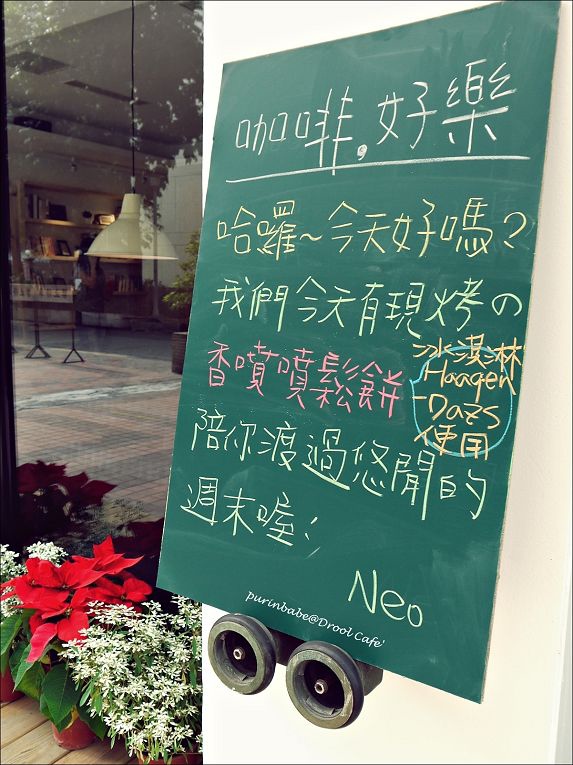 咖啡,好樂
哈囉~今天好嗎?
我們今天有現烤の
香噴噴鬆餅
冰淇淋
Haagen
-Dazs
使用
陪你渡過悠閒的
週末喔:
Neo
purinbabe@Drool Cafe'